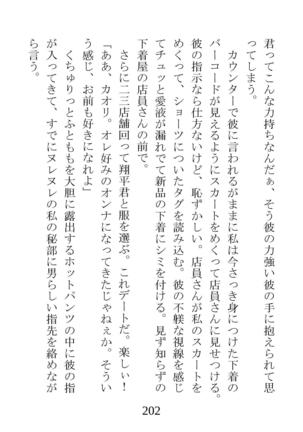 君ってこんな力持ちなんだぁ、そう彼の力強い彼の手に抱えられて思
ってしまう。
カウンターで彼に言われるがままに私は今さっき身につけた下着の
バーコードが見えるようにスカートをめくって店員さんに見せつける。
彼の指示なら仕方ないけど、恥ずかしい。店員さんが私のスカートを
めくって、ショーツについたタグを読み込む。彼の不躾な視線を感じ
てチュッと愛液が漏れでて新品の下着にシミを付ける。見ず知らずの
下着屋の店員さんの前で。
さらに二三店舗回って翔平君と服を選ぶ。これデートだ。楽しぃ！
「ああ、カオリ。オレ好みのオンナになってきたじゃねぇか。そうい
う感じ、お前も好きになれよ」
くちゅりっとふとももを大胆に露出するホットパンツの中に彼の指
が入ってきて、すでにヌレヌレの私の秘部に男らしい指先を絡めなが
ら言う。
202